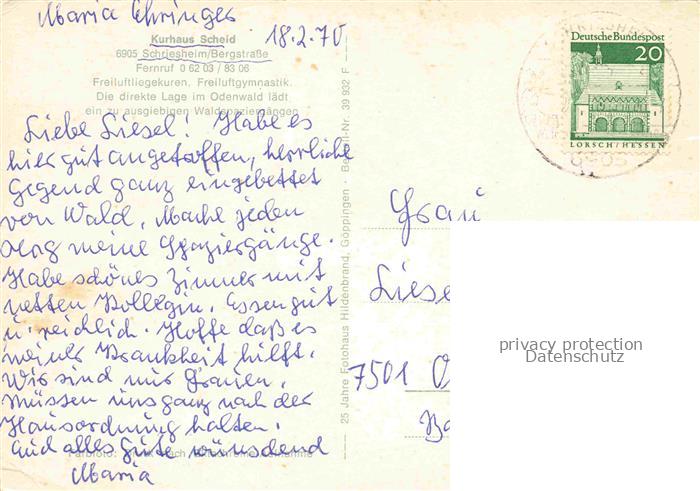 Maria Ehringer
18.2.70
Kurhaus Scheid
6905 Schriesheim/Bergstraße
Fernruf 0 62 03 / 83 06
Freiluftliegekuren. Freiluftgymnastik.
Die direkte Lage im Odenwald lädt
ein zu ausgiebigen Waldspaziergängen
Liebe Liesel! Habe es
hier gut angetroffen, herrliche
Gegend ganz eingebettet
von Wald. Mache jeden
Tag meine Spaziergänge.
Habe schönes Zimmer mit
netten Kollegin. Essen gut
u. reichlich. Hoffe daß es
meiner Krankheit hilft.
Wir sind nur Frauen.
Müssen uns ganz nach der
Hausordnung halten.
Und alles Gute wünschend
Maria
25 Jahre Fotohaus Hildenbrand, Göppingen · Bestell-Nr. 39 932 F
Deutsche Bundespost
20
LORSCH/HESSEN
6905
Frau
Liese
7501 O
Ba
privacy protection
Datenschutz